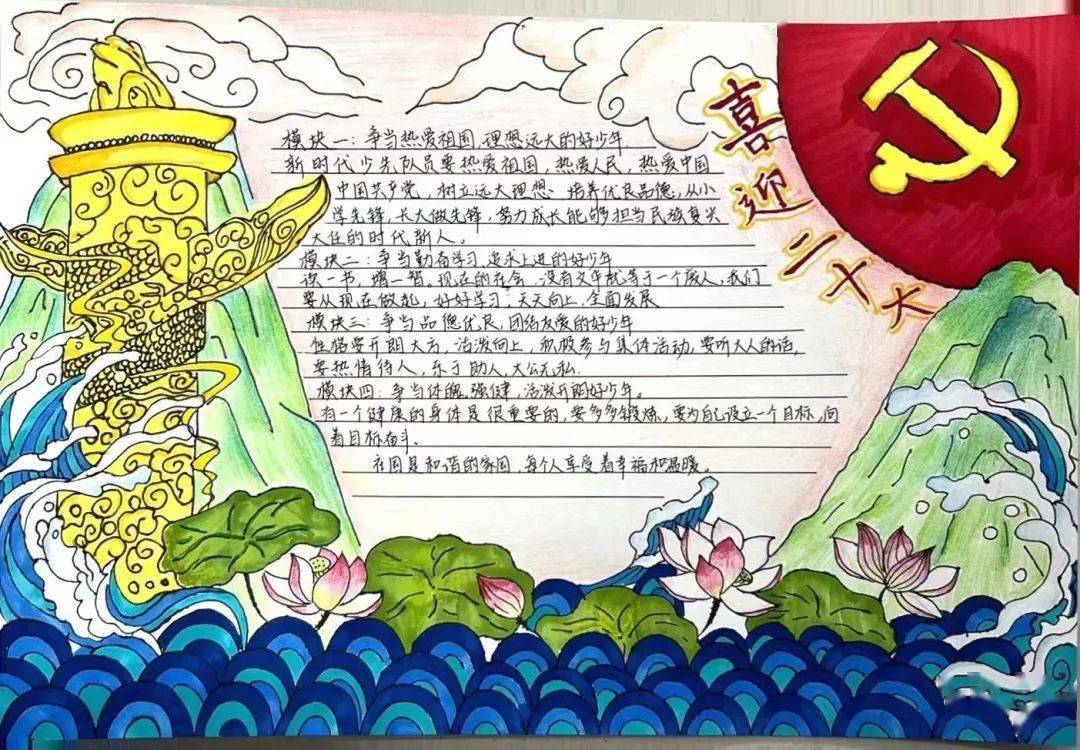 喜迎二十大
模块一：争当热爱祖国、理想远大的好少年
新时代少先队员要热爱祖国，热爱人民，热爱中国
中国共产党，树立远大理想，培养优良品德，从小
学先锋，长大做先锋，努力成长能够担当民族复兴
大任的时代新人。
模块二：争当勤奋学习、追求上进的好少年
读一书，增一智。现在的社会，没有文华就等于一个废人，我们
要从现在做起，好好学习，天天向上，全面发展
模块三：争当品德优良，团结友爱的好少年
性格要开朗大方，活泼向上，积极参与集体活动，要听大人的话，
要热情待人，乐于助人，大公无私.
模块四：争当体魄强健，活泼开朗好少年。
有一个健康的身体是很重要的，要多多锻炼，要为自己设立一个目标，向
着目标奋斗.
在国是和谐的家园，每个人享受着幸福和温暖。